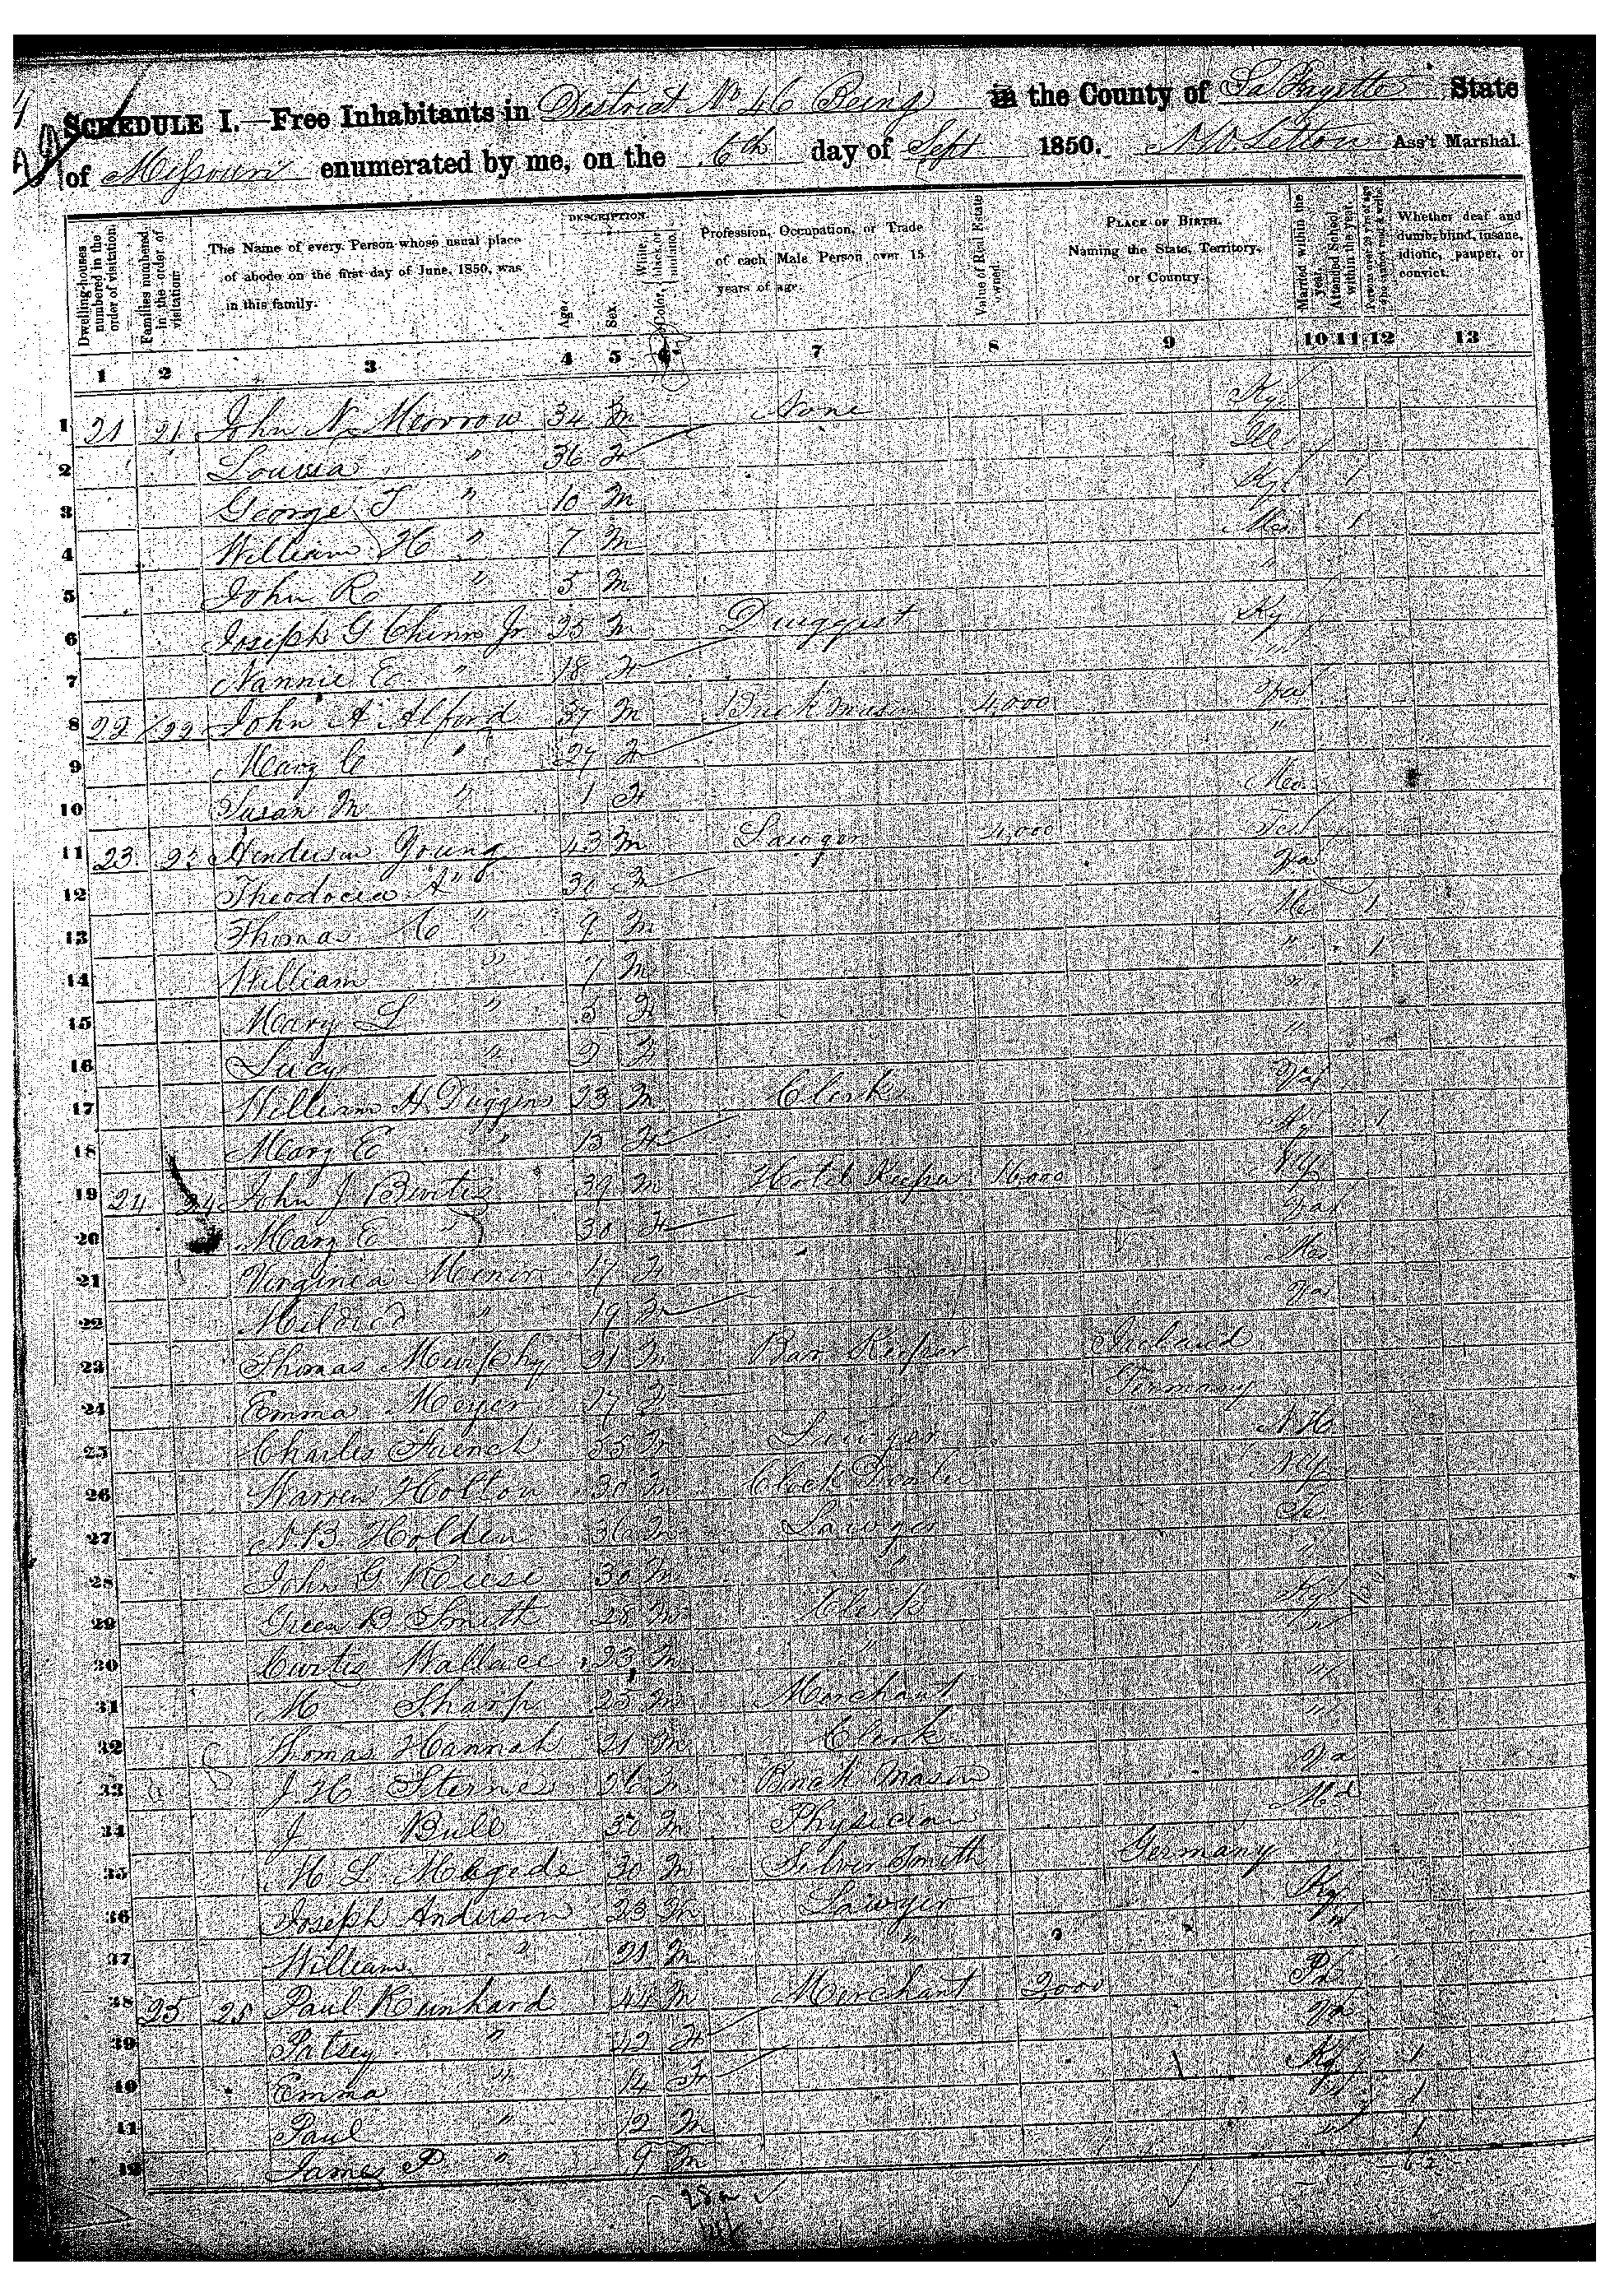 SCHEDULE I.—Free Inhabitants in District No 46 Being in the County of La Fayette State
of Missouri enumerated by me, on the 6th day of Sept 1850. Ass't Marshal.
Dwelling-houses numbered in the order of visitation.
Families numbered in the order of visitation
The Name of every Person whose usual place of abode on the first day of June, 1850, was in this family.
DESCRIPTION.
Age.
Sex.
Color, White, black, or mulatto.
Profession, Occupation, or Trade of each Male Person over 15 years of age.
Value of Real Estate owned.
PLACE OF BIRTH. Naming the State, Territory, or Country.
Married within the year.
Attended School within the year.
Persons over 20 y'rs of age who cannot read & write.
Whether deaf and dumb, blind, insane, idiotic, pauper, or convict.
1 2 3 4 5 6 7 8 9 10 11 12 13
1 21 21 John N. Morrow 34 M None Ky
2 Louisa " 36 F Ill
3 George T " 10 M Ky 1
4 William H " 7 M Mo 1
5 John R " 5 M "
6 Joseph G Chinn Jr 25 M Druggist Ky
7 Nannie E " 18 F "
8 22 22 John A Alford 37 M Brick Mason 4,000 Va
9 Mary C " 27 F "
10 Susan M " 1 F Mo
11 23 23 Henderson Young 43 M Lawyer 4,000
12 Theodocia A " F Va
13 Thomas " 9 M Mo 1
14 William " 7 M " 1
15 Mary L " 5 F "
16 Lucy " 2 F "
17 William H Duggins 23 M Clerk Va
18 Mary E " 15 F Ky 1
19 24 24 John J Burtis 39 M Hotel Keeper 16000 NY
20 Mary E " 30 F Va
21 Virginia Minor 17 F Mo
22 Mildred " 19 F Va
23 Thomas Murphy 21 M Bar Keeper Ireland
24 Emma Meyer 17 F Germany
25 Charles French 35 M Lawyer N H
26 Warren Holton 30 M Clock NY
27 N. B. Holden 36 M Lawyer
28 John G Reese 30 M " "
29 Green B Smith 28 M Clerk Ky
30 Curtis Wallace 23 M " "
31 M Sharp 25 M Merchant "
32 Thomas Hannah 21 M Clerk "
33 J. H. Sterne 26 M Brick Mason Va
34 J Bull 30 M Physician Md
35 30 M Silver Smith Germany
36 Joseph Anderson 23 M Lawyer Ky
37 William " 21 M " "
38 25 25 Paul Reinhard 44 M Merchant 2000 Pa
39 Patsey " 42 F Va
40 Emma " 14 F Ky 1
41 Paul " 12 M " 1
42 James P " 9 M " 1